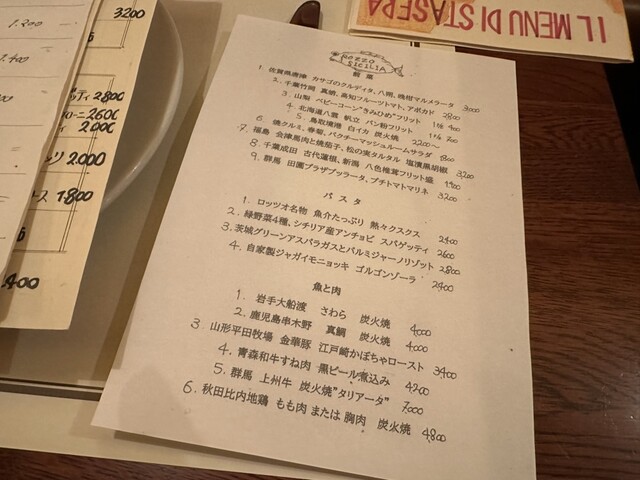 IL MENU DI STASERA
ROZZO
SICILIA
前菜
1. 佐賀県唐津 カサゴのクルディタ、八朔、晩柑マルメラータ 3,000
2. 千葉竹岡 真鯖、高知フルーツトマト、アボカド 2,800
3. 山梨 ベビーコーン“きみひめ”フリット 1本 400
4. 北海道八雲 帆立 パン粉フリット 1個 700
5. 鳥取境港 白イカ 炭火焼 2,200〜
6. 焼クルミ、春菊、パクチーマッシュルームサラダ 1,800
7. 福島 会津馬肉と焼茄子、松の実タルタル 塩漬黒胡椒 3,200
8. 千葉成田 古代蓮根、新潟 八色椎茸フリット盛 1,900
9. 群馬 田園プラザブッラータ、プチトマトマリネ 3,200
パスタ
1. ロッツオ名物 魚介たっぷり 熱々クスクス 2,400
2. 緑野菜4種、シチリア産アンチョビ スパゲッティ 2,600
3. 茨城グリーンアスパラガスとパルミジャーノリゾット 2,800
4. 自家製ジャガイモニョッキ ゴルゴンゾーラ 2,400
魚と肉
1. 岩手大船渡 さわら 炭火焼 4,000
2. 鹿児島串木野 真鯛 炭火焼 4,000
3. 山形平田牧場 金華豚 江戸崎かぼちゃロースト 3,400
4. 青森和牛すね肉 黒ビール煮込み 4,200
5. 群馬 上州牛 炭火焼“タリアータ” 7,000
6. 秋田比内地鶏 もも肉 または 胸肉 炭火焼 4,800
1,200
3200
2800
2600
2,000
2,000
1,800
2,400